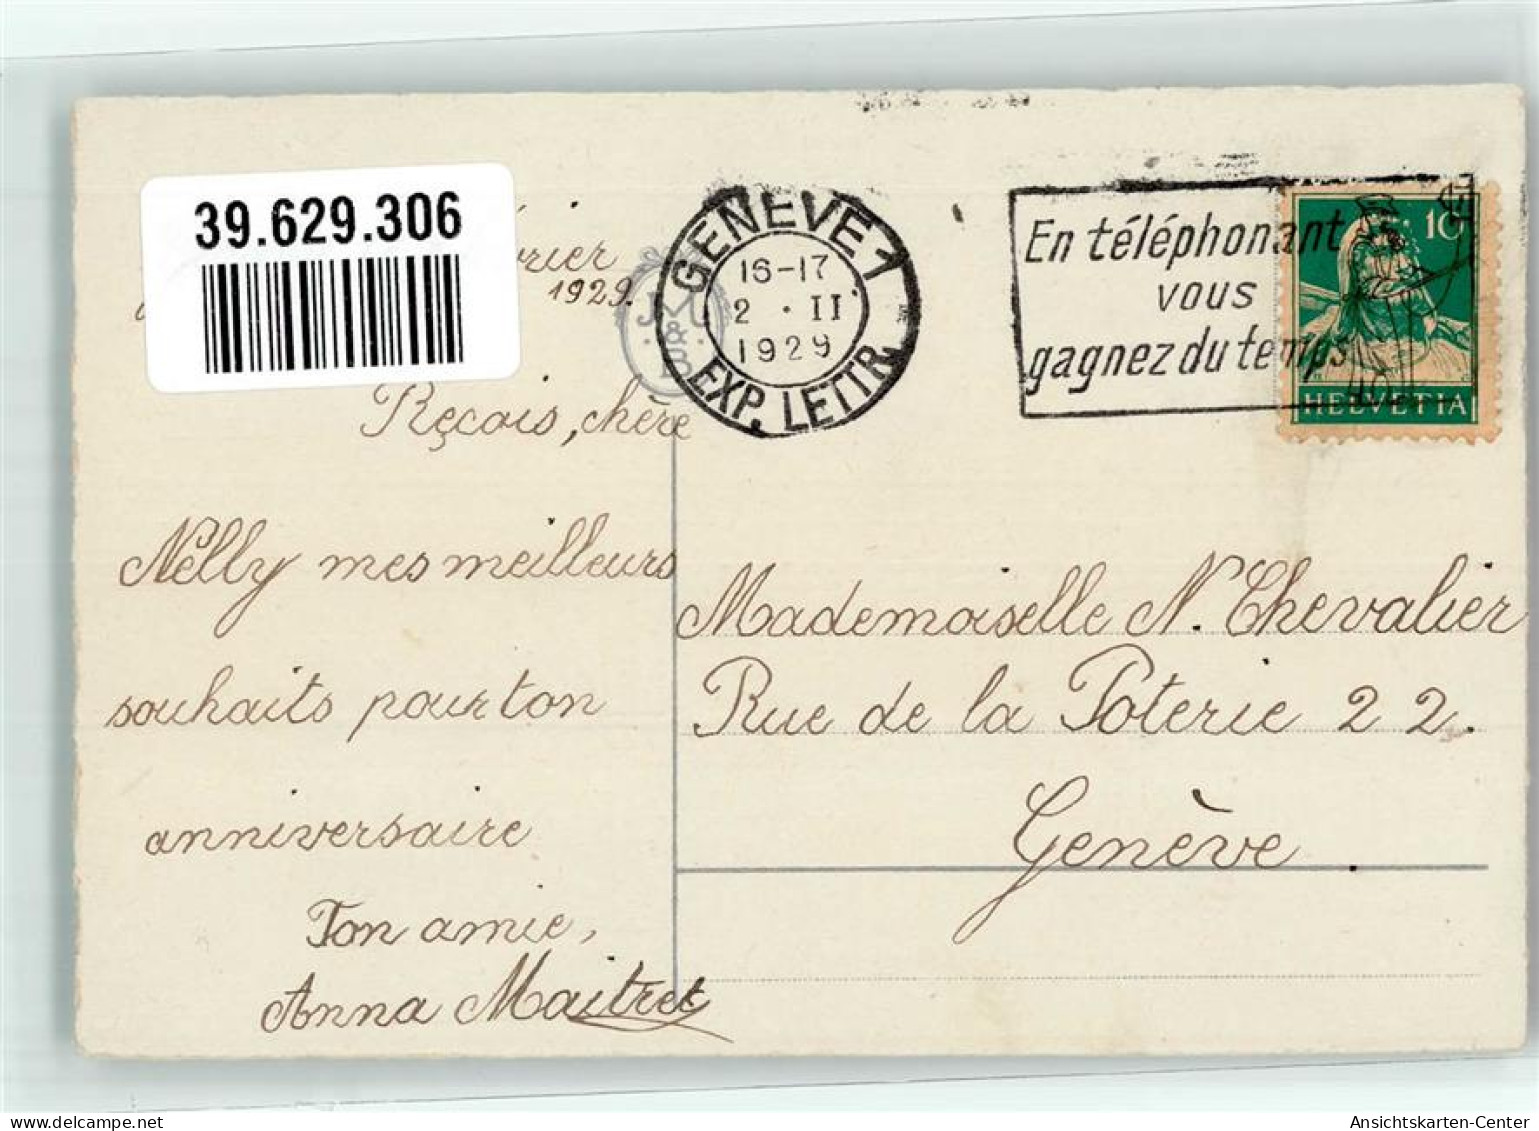 39.629.306
1929.
Reçois, chère
Nelly mes meilleurs
souhaits pour ton
anniversaire
Ton amie,
Anna Maitret
GENEVE 1
16-17
2 · II
1929
EXP. LETTR.
En téléphonant
vous
gagnez du temps
10
HELVETIA
Mademoiselle N. Chevalier
Rue de la Poterie 22.
Genève.
Ansichtskarten-Center